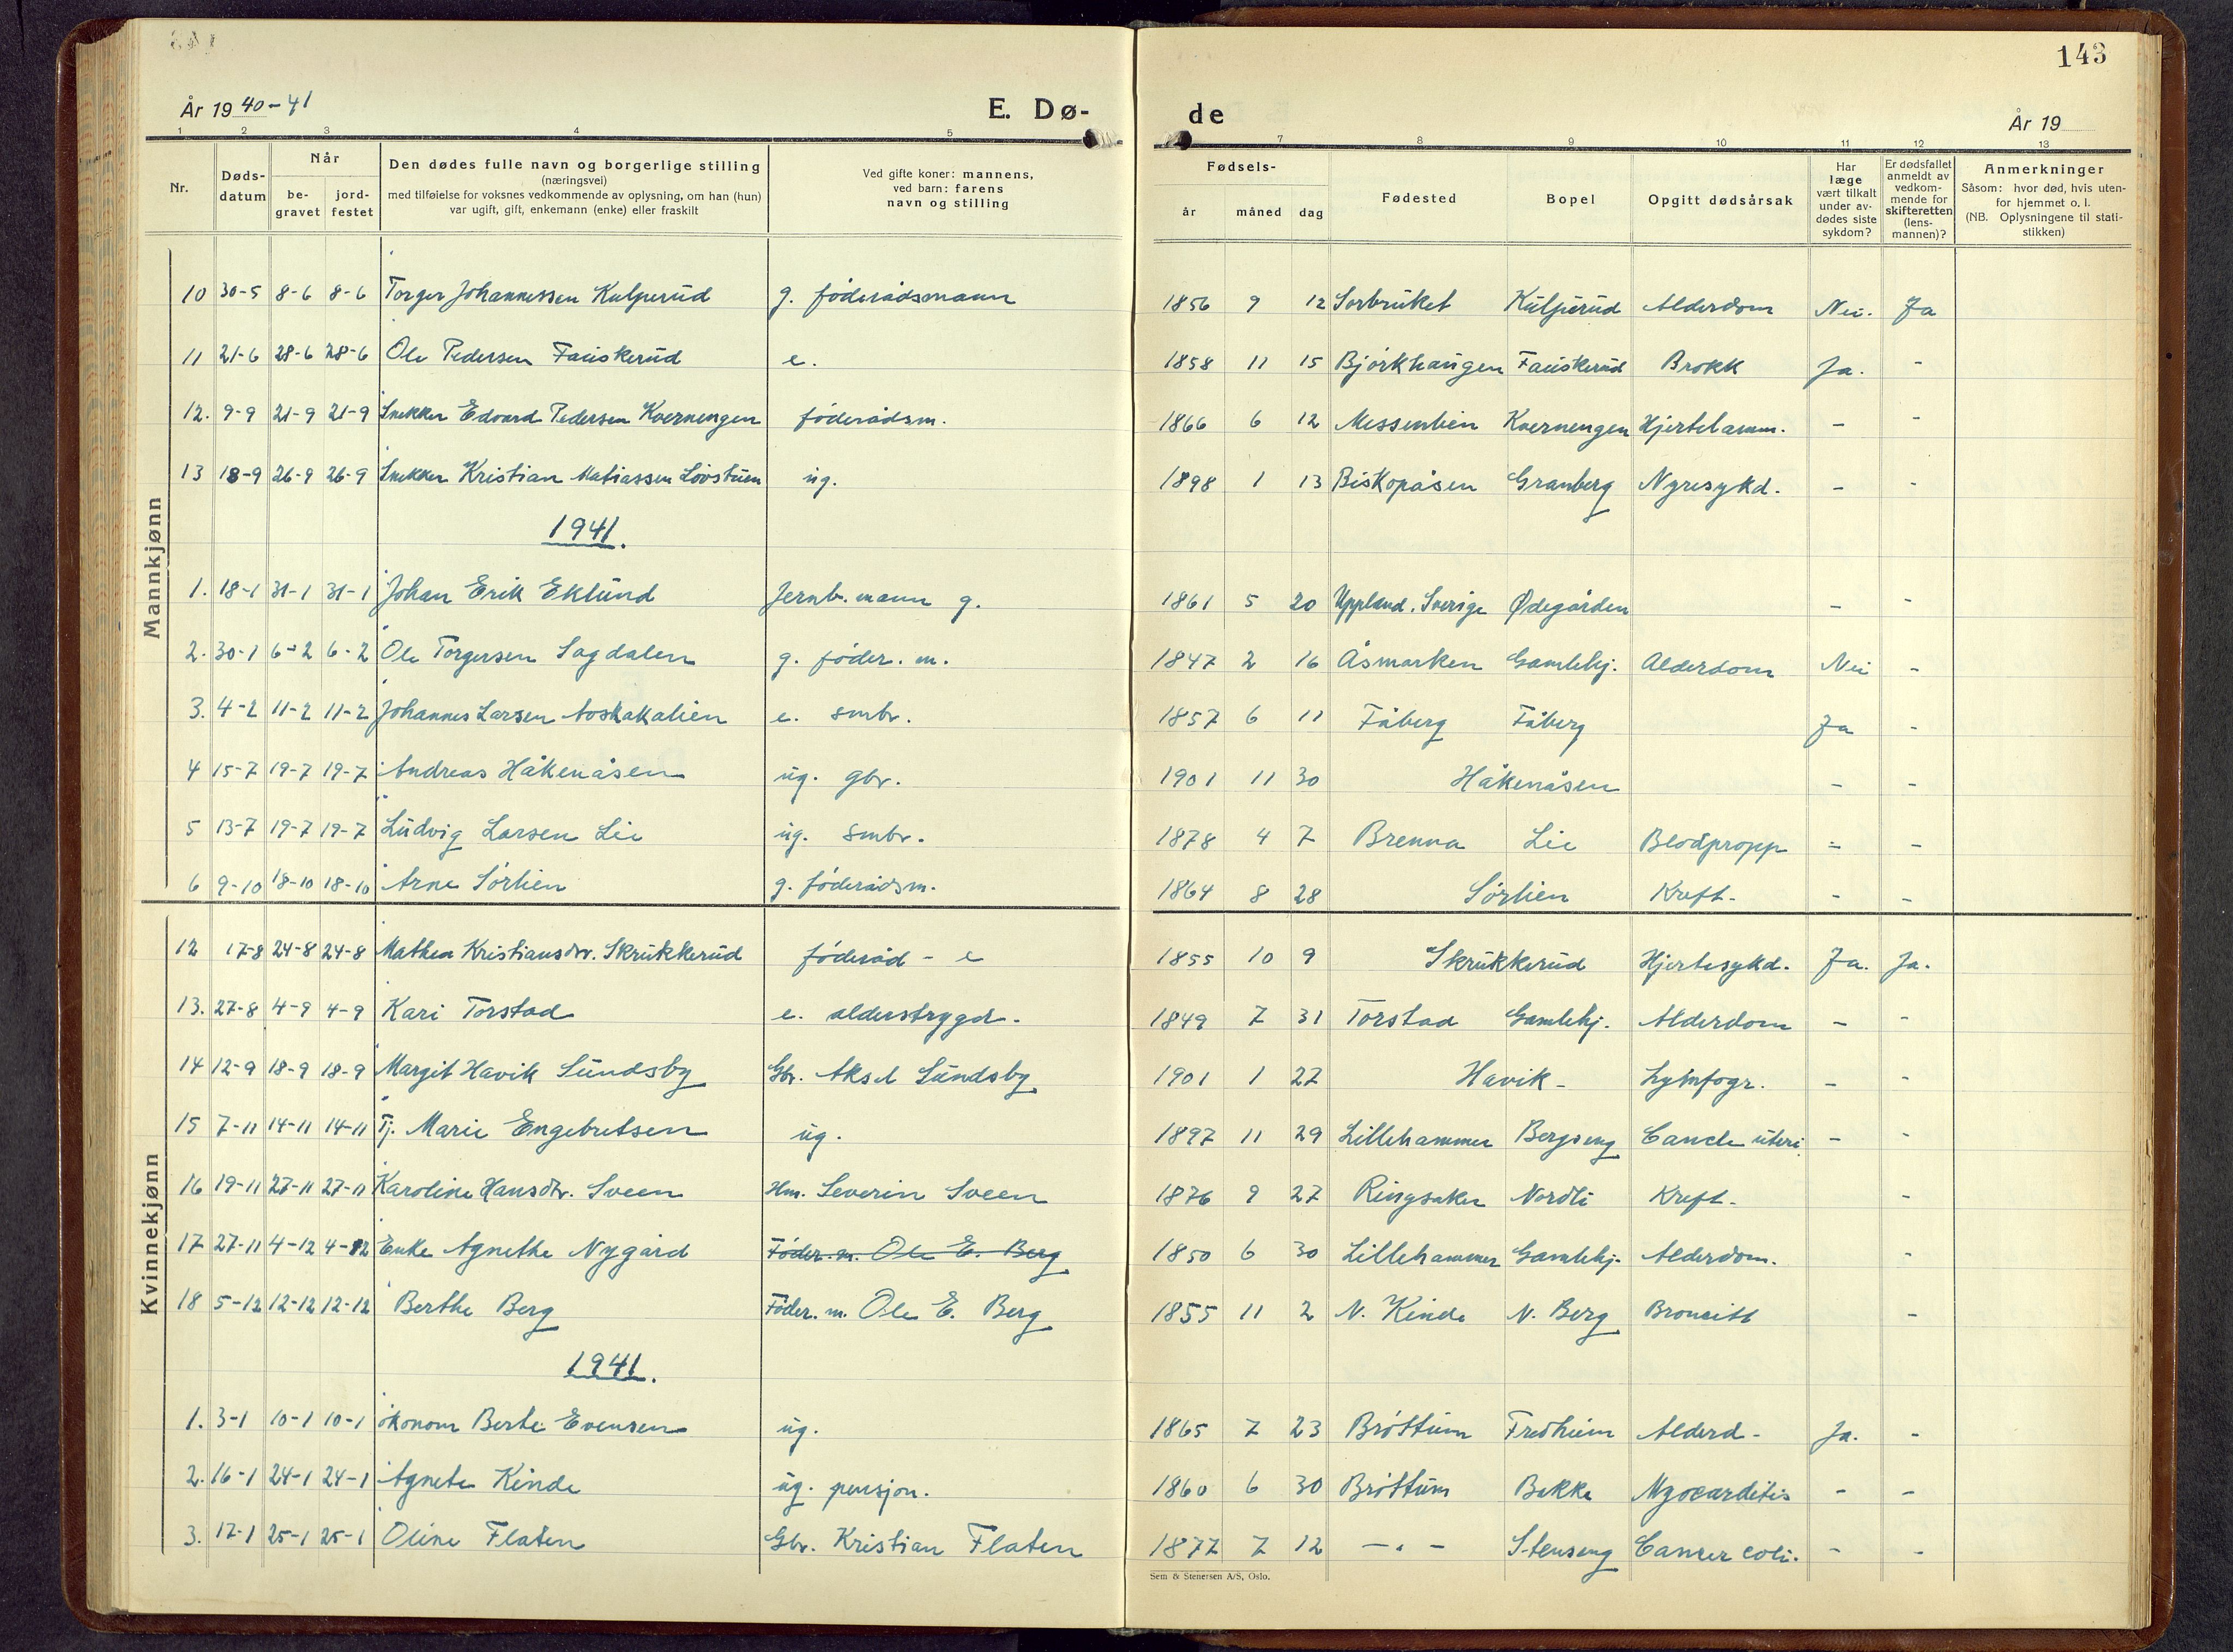 143
År 1940-41 E. Dø- de År 19
1 2 3 4 5 7 8 9 10 11 12 13
Nr. Døds-datum Når be-gravet jord-festet Den dødes fulle navn og borgerlige stilling (næringsvei) med tilføielse for voksnes vedkommende av oplysning, om han (hun) var ugift, gift, enkemann (enke) eller fraskilt Ved gifte koner: mannens, ved barn: farens navn og stilling Fødsels- år måned dag Fødested Bopel Opgitt dødsårsak Har læge vært tilkalt under av-dødes siste sykdom? Er dødsfallet anmeldt av vedkom-mende for skifteretten (lens-mannen)? Anmerkninger Såsom: hvor død, hvis uten-for hjemmet o. l. (NB. Oplysningene til stati-stikken)
Mannkjønn
10 30-5 8-6 8-6 Torger Johannessen Kulperud g. föderådsmann 1856 9 12 Sorbruket Kulperud Alderdom Nei. Ja
11 21-6 28-6 28-6 Ole Pedersen Fauskerud e. 1858 11 15 Björkhaugen Fauskerud Brokk Ja. -
12. 9-9 21-9 21-9 Snekker Edvard Pedersen Kvernengen föderådsm. 1866 6 12 Messenlien Kvernengen Hjertelamm. - -
13 18-9 26-9 26-9 Snekker Kristian Matiassen Lövstuen ug. 1898 1 13 Biskopåsen Granberg Nyresykd. - -
1941.
1. 18-1 31-1 31-1 Johan Erik Eklund Jernb.mann g. 1861 5 20 Uppland, Sverige Ødegården - -
2. 30-1 6-2 6-2 Ole Torgersen Sagdalen g. föder. m. 1847 2 16 Åsmarken Gamlehj. Alderdom Nei -
3. 4-2 11-2 11-2 Johannes Larsen e. smbr. 1857 6 11 Fåberg Fåberg Ja -
4 15-7 19-7 19-7 Andreas Håkenåsen ug. gbr. 1901 11 30 Håkenåsen - -
5 13-7 19-7 19-7 Ludvig Larsen Lie ug. smbr. 1878 4 7 Brenna Lie Blodpropp - -
6 9-10 18-10 18-10 Arne Sörlien g. föderådsm. 1864 8 28 Sörlien Kreft - - -
Kvinnekjønn
12 17-8 24-8 24-8 Mathea Kristiansdtr. Skrukkerud föderåd - e 1855 10 9 Skrukkerud Hjertesykd. Ja. Ja.
13. 27-8 4-9 4-9 Kari Torstad e. alderstrygd. 1849 7 31 Torstad Gamlehj. Alderdom - -
14 12-9 18-9 18-9 Margit Havik Sundsby Gbr. Aksel Sundsby 1901 1 27 Havik - Lymfogr. - -
15 7-11 14-11 14-11 Tj. Marie Engebretsen ug. 1897 11 29 Lillehammer Bergseng uteri - -
16 19-11 27-11 27-11 Karoline Hansdtr. Sveen Hm. Severin Sveen 1876 9 27 Ringsaker Nordli Kreft - -
17 27-11 4-12 4-12 Enke Agnethe Nygård Föder. m. Ole E. Berg 1850 6 30 Lillehammer Gamlehj. Alderdom. -
18 5-12 12-12 12-12 Berthe Berg Föder. m. Ole E. Berg 1855 11 2 N. Kinde N. Berg Broncitt -
1941.
1. 3-1 10-1 10-1 ökonom Berte Evensen ug. 1865 7 23 Bröttum Fredheim Alderd - Ja. -
2. 16-1 24-1 24-1 Agnete Kinde ug. pensjon. 1860 6 30 Bröttum Bakke Myocarditis - -
3. 17-1 25-1 25-1 Oline Flaten Gbr. Kristian Flaten 1877 7 12 -"- Stenseng Cancer coli. - -
Sem & Stenersen A/S, Oslo.